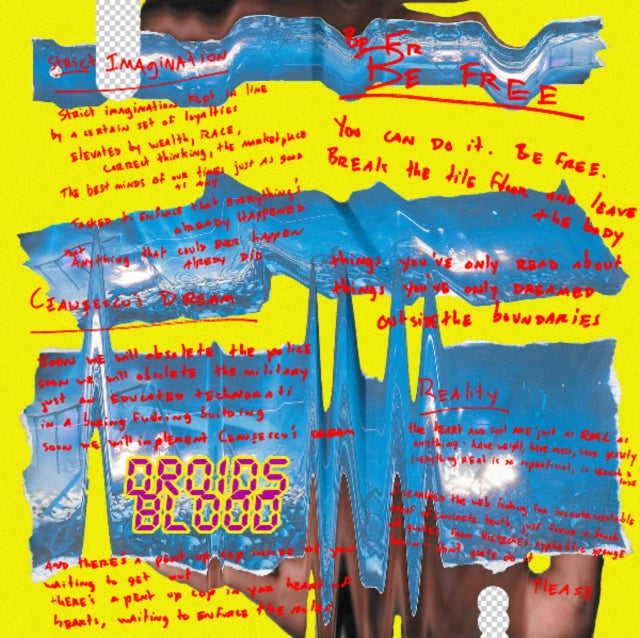 Strict IMAGINATION
Strict imagination kept in line
by a certain set of loyalties
Elevated by wealth, RACE,
correct thinking, the marketplace
The best minds of our times just as good
as any
TASKED to ENFORCE that EVERYthing's
alREADY HAPPENED
that
Anything that could EVER happen
AlREDY DID
CEAUSESCU'S DREAM
Soon we will obsolete the police
soon we will obsolete the military
just an EDUCATED technorati
in a boring fucking building
soon we will implement CEAUSESCU'S DREAM
DROIDS
BLOOD
AND thERE'S A pent up cop inside of you
waiting to get out
there's a pent up cop in your heart of
hearts, waiting to ENFORCE the rules
BE FR
BE FREE
You CAN DO it. BE FREE.
BREAK the tile floor AND lEAVE
the body
things you've only READ about
things you've only DREAMED
outside the boundaries
Reality
the HEART AND soul ARE just as REAL as
anything - have weight, have mass, have gravity
EVERYthing REAL is so superficial, is
I SEARCHED the web looking for incontrovertible
proof of concrete truth, just found a bunch
of quotes from Nietzsche's syphilitic sponge
don't quite do it
PLEASE